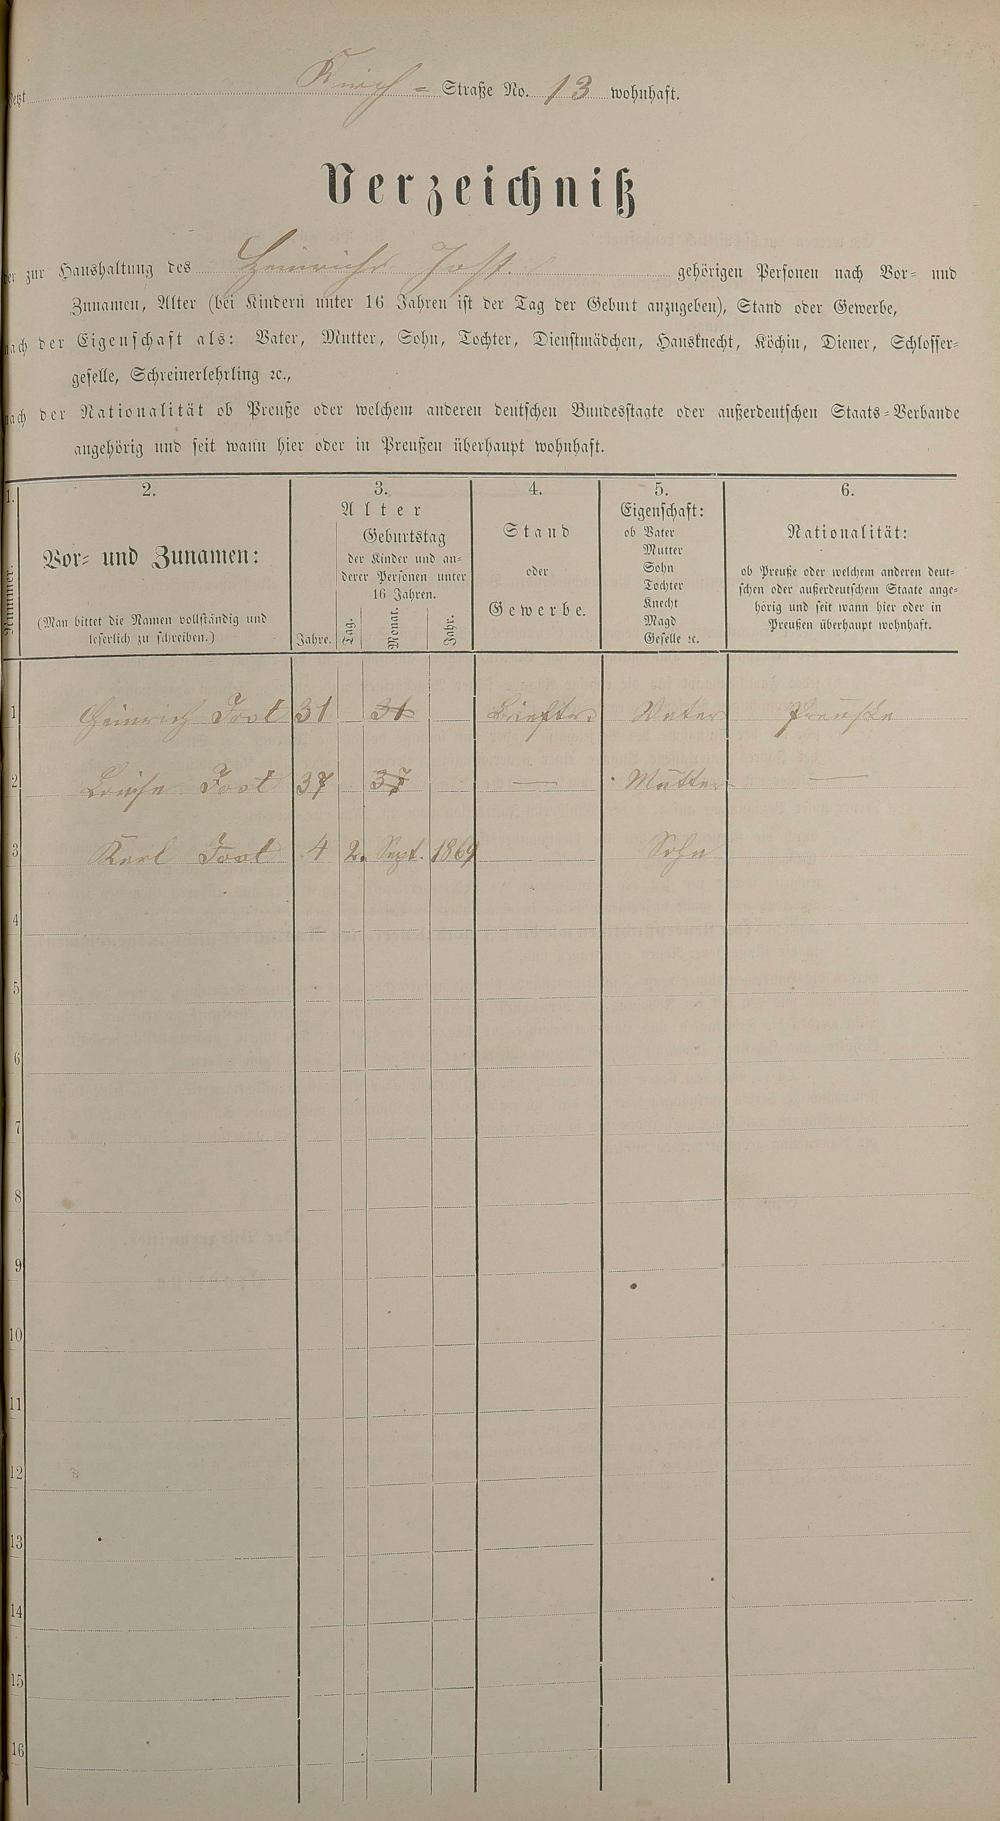 Straße No. 13 wohnhaft.
Verzeichniß
der zur Haushaltung des Heinrich Jost. gehörigen Personen nach Vor- und
Zunamen, Alter (bei Kindern unter 16 Jahren ist der Tag der Geburt anzugeben), Stand oder Gewerbe,
nach der Eigenschaft als: Vater, Mutter, Sohn, Tochter, Dienstmädchen, Hausknecht, Köchin, Diener, Schlosser-
geselle, Schreinerlehrling ꝛc.,
nach der Nationalität ob Preuße oder welchem anderen deutschen Bundesstaate oder außerdeutschen Staats-Verbande
angehörig und seit wann hier oder in Preußen überhaupt wohnhaft.
1.
Nummer.
2.
Vor- und Zunamen:
(Man bittet die Namen vollständig und
leserlich zu schreiben.)
3.
Alter
Jahre.
Geburtstag
der Kinder und an-
derer Personen unter
16 Jahren.
Tag.
Monat.
Jahr.
4.
Stand
oder
Gewerbe.
5.
Eigenschaft:
ob Vater
Mutter
Sohn
Tochter
Knecht
Magd
Geselle ꝛc.
6.
Nationalität:
ob Preuße oder welchem anderen deut-
schen oder außerdeutschem Staate ange-
hörig und seit wann hier oder in
Preußen überhaupt wohnhaft.
1 Heinrich Jost 31 31 Briefträ. Vater Preuße
2 Louise Jost 37 37 — Mutter —
3 Karl Jost 4 2. Sept. 1869 Sohn
4
5
6
7
8
9
10
11
12
13
14
15
16